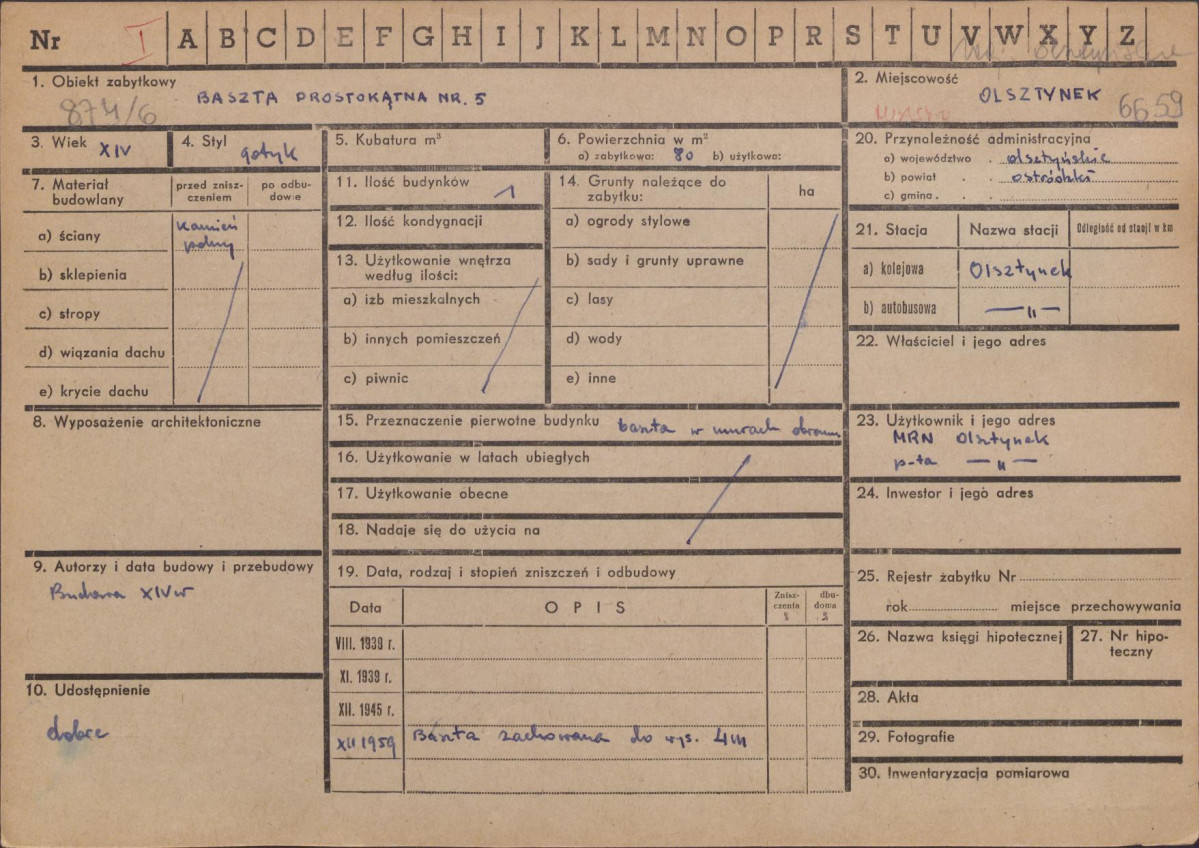 Nr I A B C D E F G H I J K L M N O P R S T U V W X Y Z
1. Obiekt zabytkowy
874/6 BASZTA PROSTOKĄTNA NR. 5
2. Miejscowość
OLSZTYNEK 6659
3. Wiek XIV
4. Styl gotyk
5. Kubatura m³
6. Powierzchnia w m²
a) zabytkowa: 80 b) użytkowa:
7. Materiał budowlany
przed znisz-
czeniem
po odbu-
dowie
a) ściany kamień
polny
b) sklepienia
c) stropy
d) wiązania dachu
e) krycie dachu
8. Wyposażenie architektoniczne
9. Autorzy i data budowy i przebudowy
Budowa XIV w
10. Udostępnienie
dobre
11. Ilość budynków 1
12. Ilość kondygnacji
13. Użytkowanie wnętrza
według ilości:
a) izb mieszkalnych
b) innych pomieszczeń
c) piwnic
14. Grunty należące do
zabytku:
ha
a) ogrody stylowe
b) sady i grunty uprawne
c) lasy
d) wody
e) inne
15. Przeznaczenie pierwotne budynku baszta w murach obronn
16. Użytkowanie w latach ubiegłych
17. Użytkowanie obecne
18. Nadaje się do użycia na
19. Data, rodzaj i stopień zniszczeń i odbudowy
Data OPIS
Znisz-
czenia
%
dbu-
doma
%
VIII. 1939 r.
XI. 1939 r.
XII. 1945 r.
XII 1959 Baszta zachowana do wys. 4m
20. Przynależność administracyjna
a) województwo olsztyńskie
b) powiat ostródzki
c) gmina
21. Stacja Nazwa stacji Odległość od stacji w km
a) kolejowa Olsztynek
b) autobusowa —"—
22. Właściciel i jego adres
23. Użytkownik i jego adres
MRN Olsztynek
p-ta —"—
24. Inwestor i jego adres
25. Rejestr żabytku Nr
rok miejsce przechowywania
26. Nazwa księgi hipotecznej
27. Nr hipo-
teczny
28. Akta
29. Fotografie
30. Inwentaryzacja pomiarowa